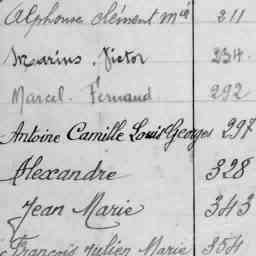 Alphonse clément mie 211
Marius. Victor 234.
Marcel. Fernand 292
Antoine Camille Louis Georges 297
Alexandre 328
Jean Marie 343
François Julien Marie 354